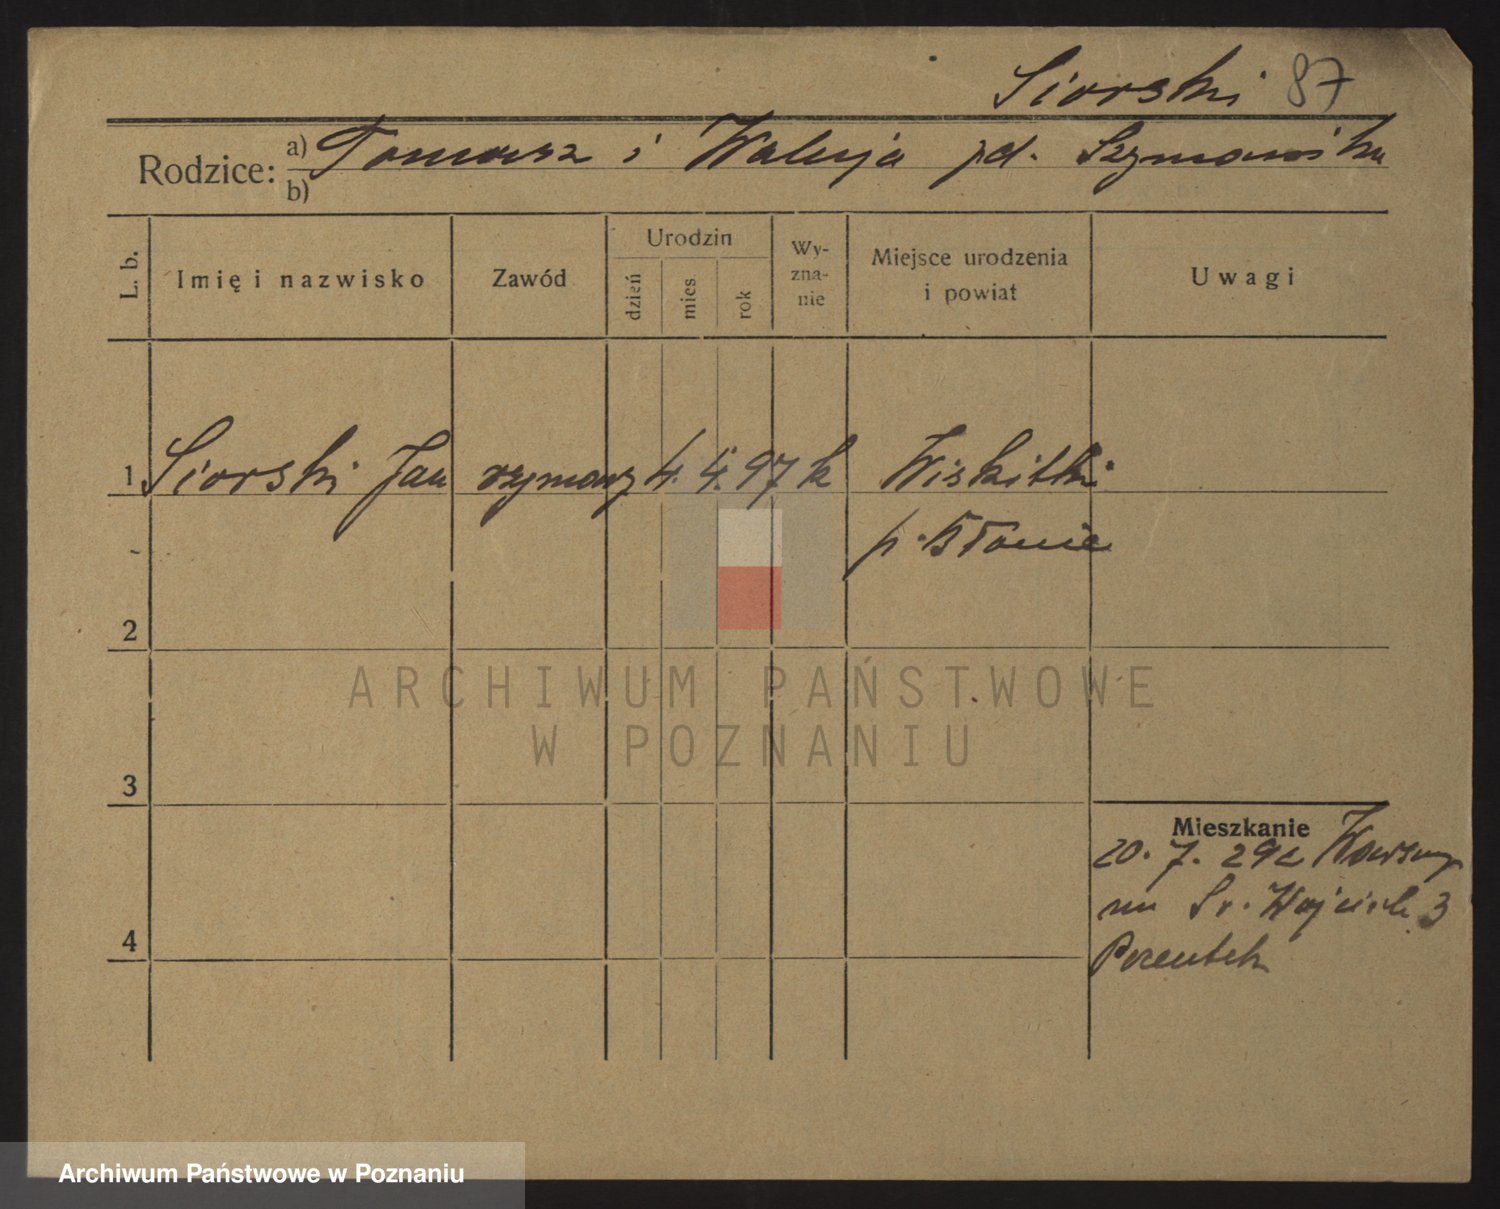 Siorski 87
Rodzice: a) Tomasz i Walerja zd. Szymańska
b)
L. b. Imię i nazwisko Zawód Urodzin dzień mies rok Wy-zna-nie Miejsce urodzenia i powiat Uwagi
1 Siorski Jan rymarz 4. 4. 97 k Wiskitki
p. Błonie
2
ARCHIWUM PAŃSTWOWE
W POZNANIU
3
Mieszkanie
20. 7. 29 z Warszawy
na Św. Wojciech 3
4
Archiwum Państwowe w Poznaniu